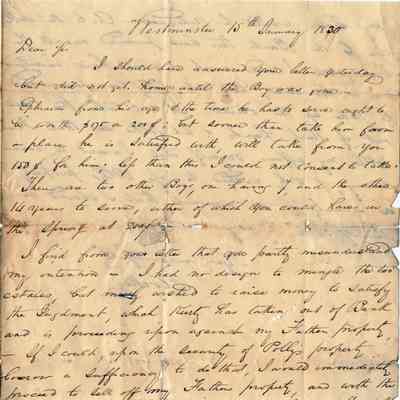 Westminster 15th January 1830
Dear Sir
I should have answered your letter yesterday
but did not get home until the Boy was gone —
Ephraim from his age & the time he has to serve ought to
be worth $175 or 200$: but sooner than take him from
a place he is satisfied with, will take from you
150$ for him. Less than this I could not consent to take.
There are two other Boys, one having 7 and the other
14 years to serve, either of which you could have in
the Spring at 200$
I find from your letter that you partly misunderstood
my intention — I had no design to mingle the two
estates, but wished to raise money to satisfy
the Judgment, which has taken out of Bank
and is proceeding upon against my Fathers property
— If I could, upon the security of Pollys property
borrow a sufficiency to do that, I would immediately
proceed to sell off my Fathers property, and with the